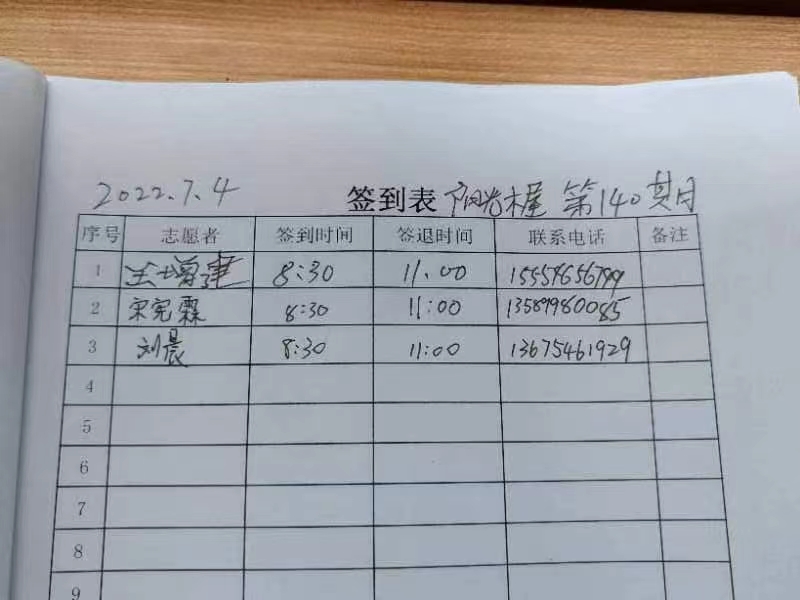 2022.7.4 签到表 阳光木屋 第140期
序号 志愿者 签到时间 签退时间 联系电话 备注
1 王增建 8:30 11.00
2 宋宪霖 8:30 11:00 13589980085
3 刘晨 8:30 11:00 13675461929
4
5
6
7
8
9